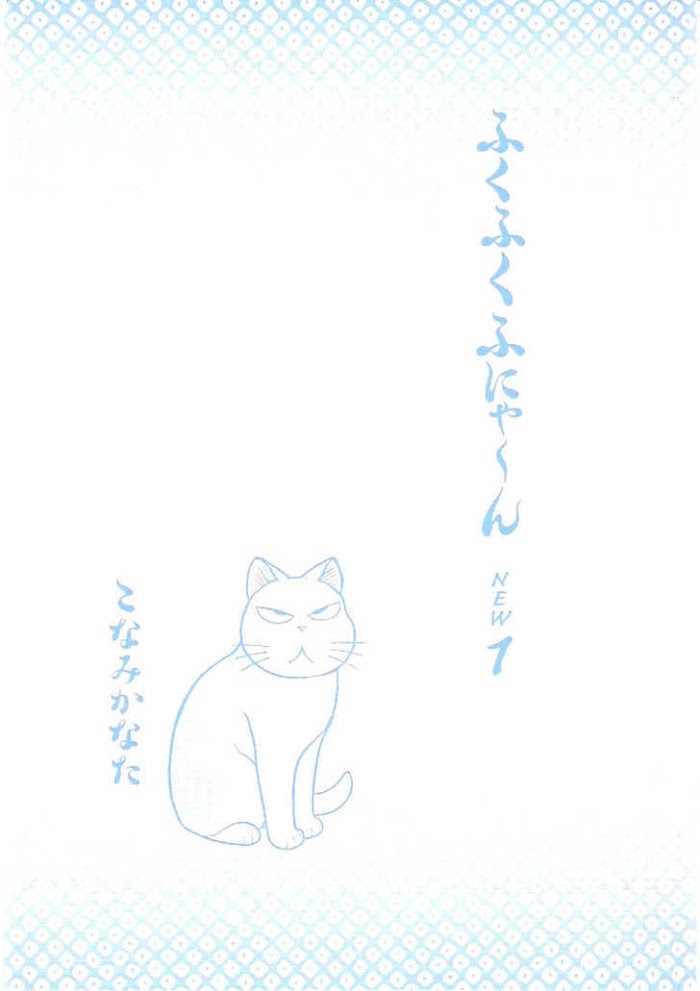 ふくふくふにゃ〜ん NEW 1
こなみかなた